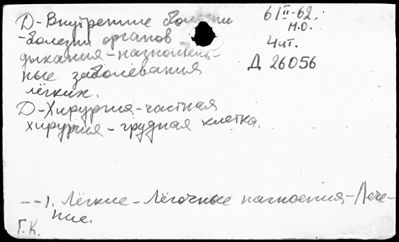 Д-Внутренние болезни
-болезни органов
дыхания-нагноитель-
ные заболевания
лёгких.
Д-Хирургия-частная
хирургия-грудная клетка.
6/II-62.
н.о.
4 чт.
Д 26056
--1. Лёгкие-Лёгочные нагноения-Лече-
ние.
Г.К.